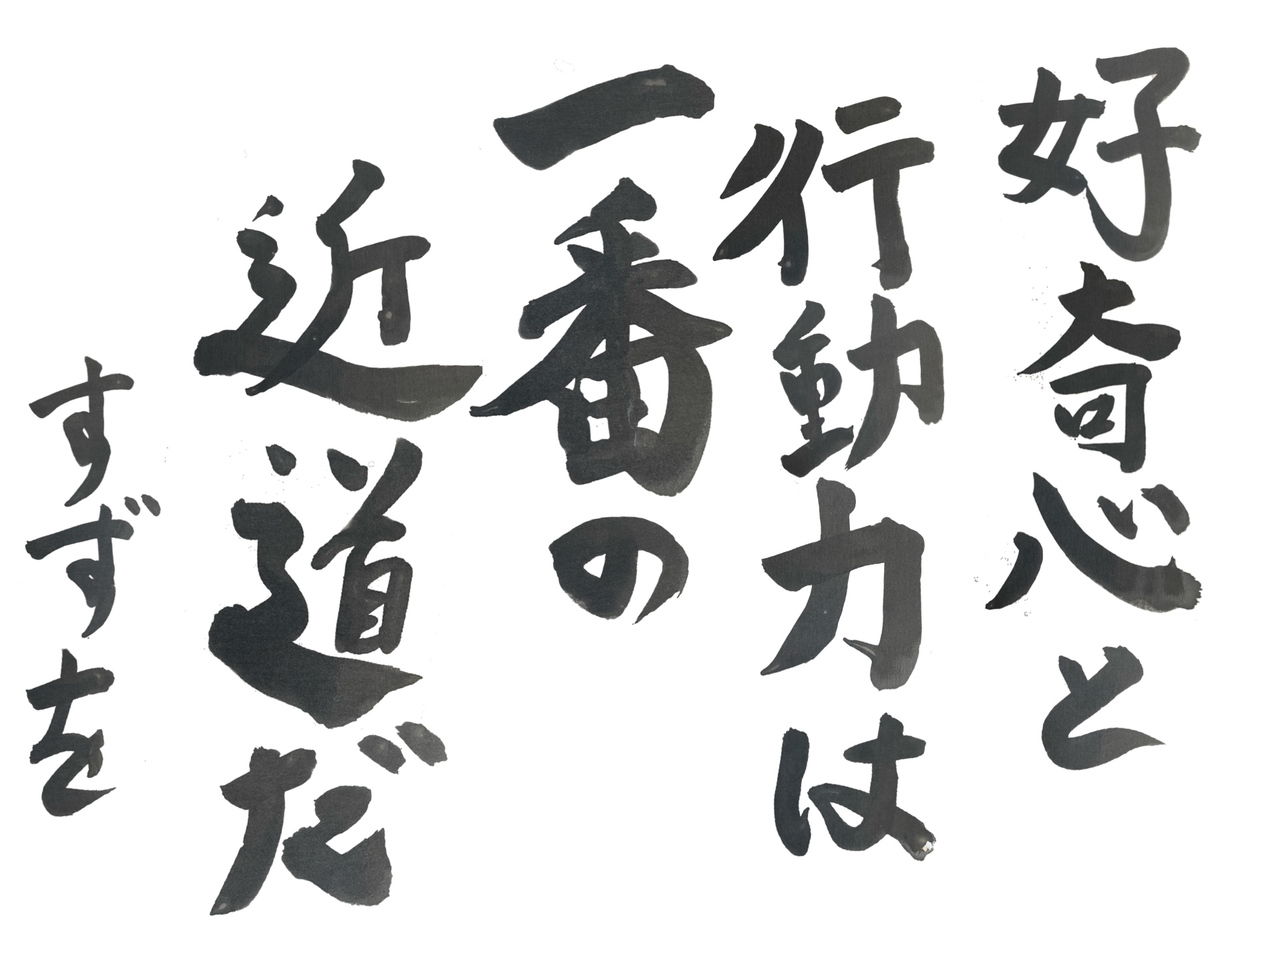 好奇心と
行動力は
一番の
近道だ
すずを